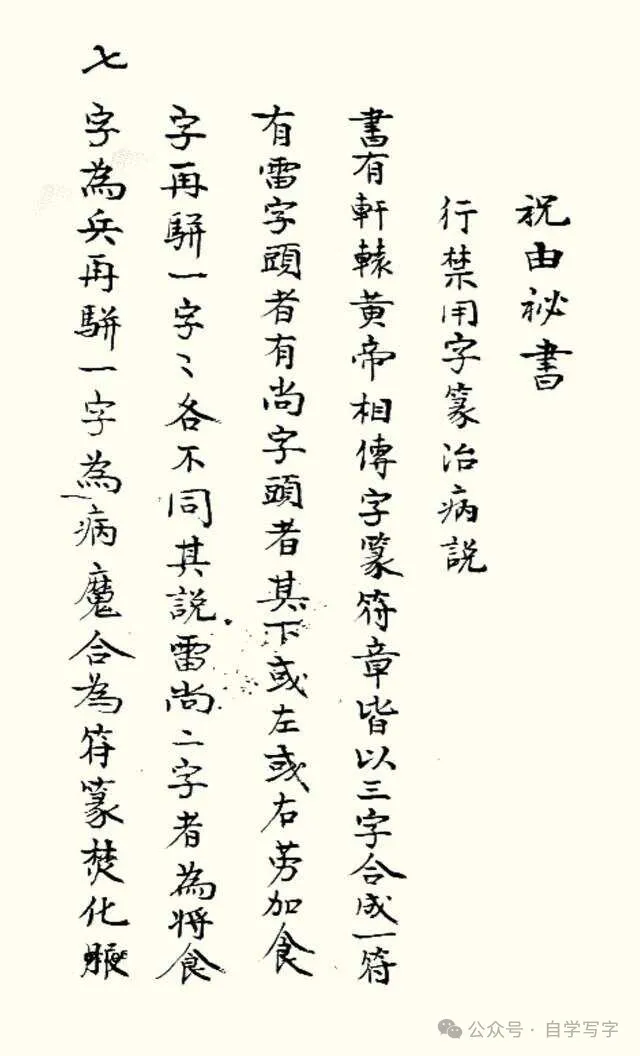 祝由祕書
行禁用字篆治病説
書有軒轅黃帝相傳字篆符章皆以三字合成一符
有雷字頭者有尚字頭者其下或左或右旁加食
字再駢一字〻各不同其説雷尚二字者為將食
字為兵再駢一字為病魔合為符篆焚化服
七
公众号·自学写字